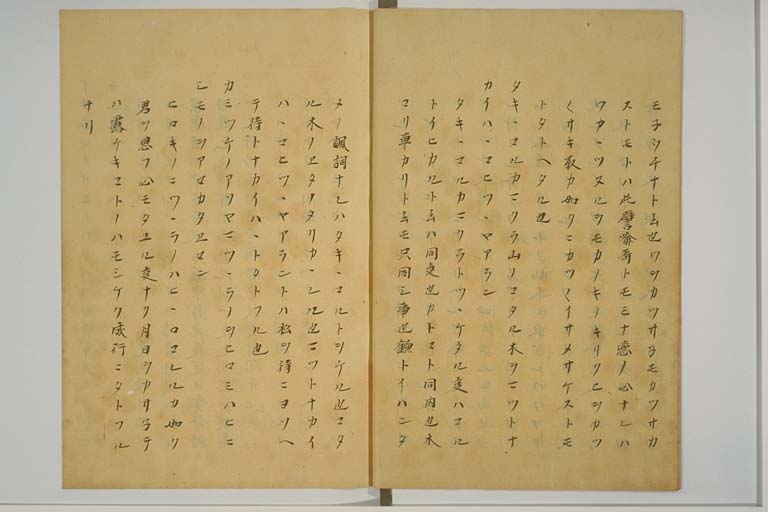 モチシチナト云也ワシカツサチモカツサカ
ストモトハ此譬喩哥トモミナ恋ノ心ナレハ
ワカ丶ツヌルヲモカノキノキリクヒシカツ
〱サキ取カ如クニカツ〱イサメサケストモ
トタトヘタル也
タキ丶コルカマクラ山ノコタル木ヲマツトナ
カイハ丶コヒツ丶ヤアラン
タキ丶コルカマクラトツ丶ケタル支ハコル
トイヒカルト云ハ同支也カトコト同内也木
コリ草カリト云モ只同シ事也鎌トイハンタ
メノ諷詞ナレハタキ丶コルトヲケル也コタ
ル木ノエタノタリカ丶レル也マツトナカイ
ハ丶コヒツ丶ヤアラントハ松ヲ待ニヨソヘ
テ待トナカイハ丶トタトフル也
カミツケノアツマニツ丶ラノヲヒロミハヒニ
シモノヲアセカタエセン
ヒロキノニツ丶ラノハヒ丶ロコレルカ如ク
君ヲ思フ心モタユル支ナク月日ヲカサネテ
ハ露ケキコトノハモシケク成行ニタトフル
ナリ